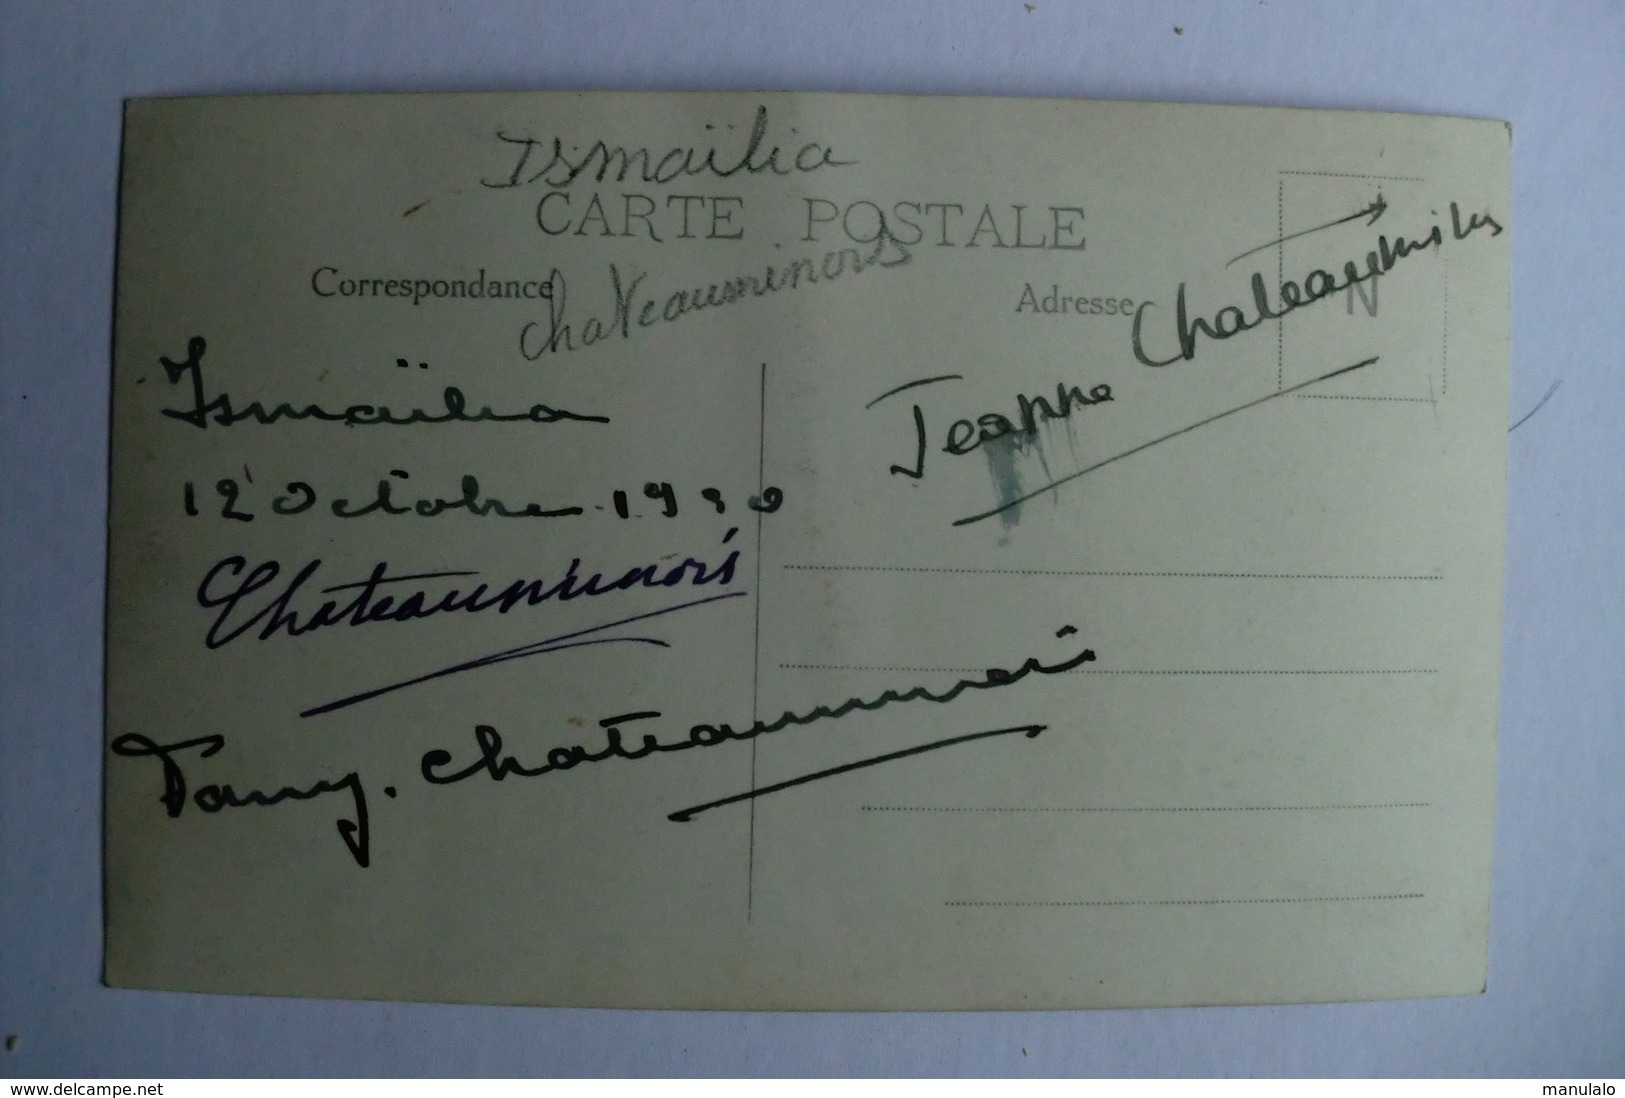 Ismaïlia
CARTE POSTALE
Correspondance
Chateauminois
Adresse
N
Jeanne Chateauminois
Ismaïlia
12 Octobre 1930
Chateauminois
Dany. Chateauminois
www.delcampe.net
manulalo